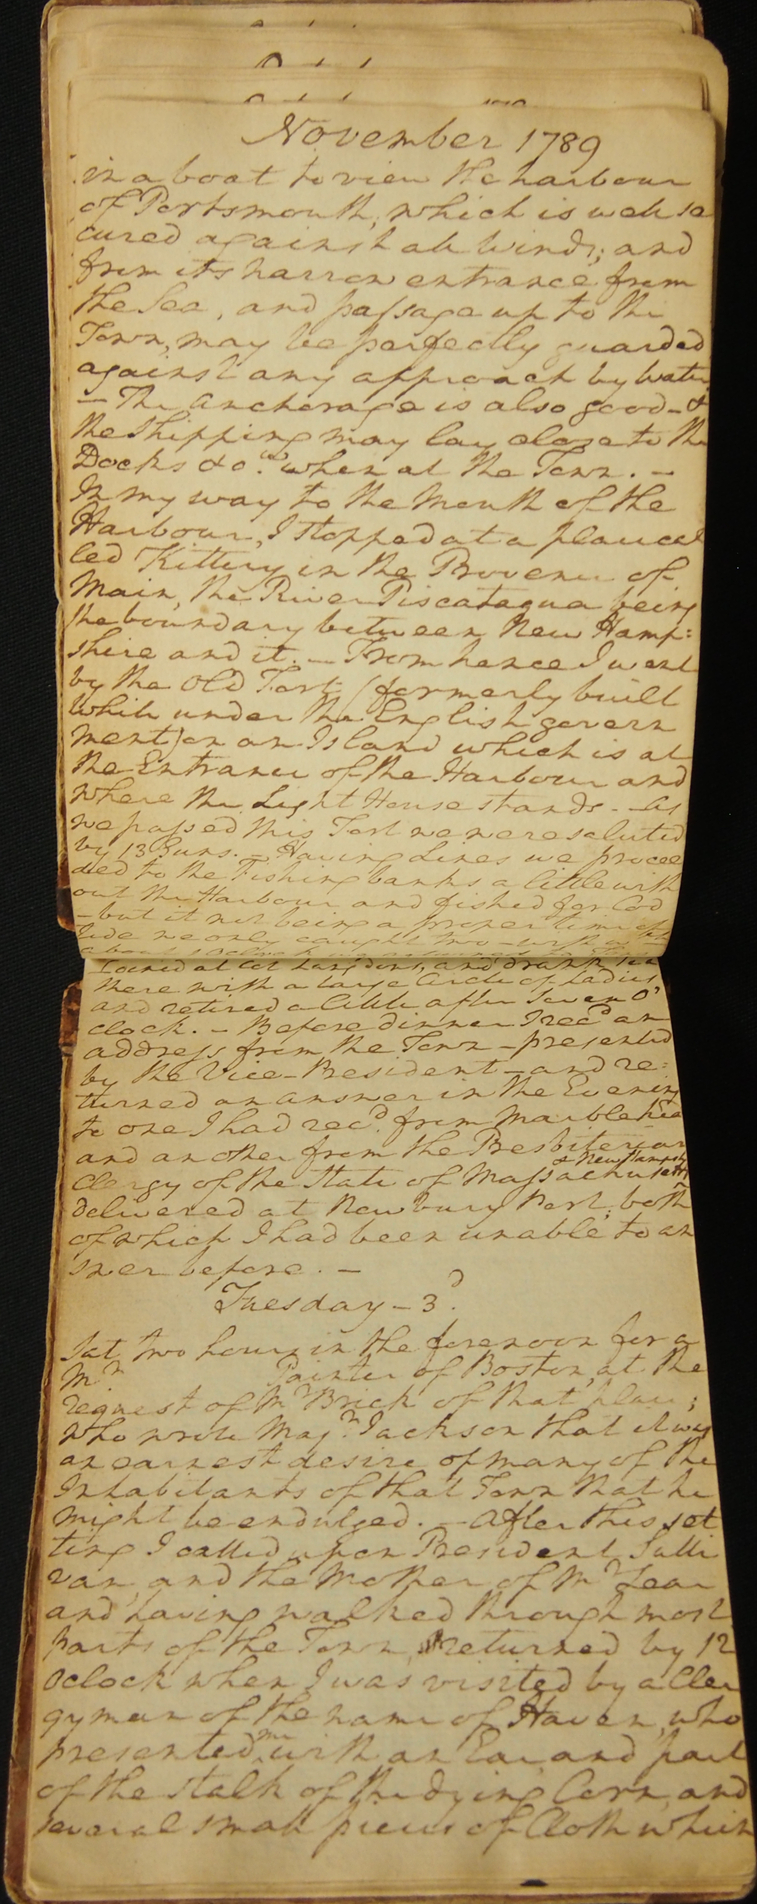 November 1789
in a boat to view the harbour
of Portsmouth, which is well se
cured against all Winds; and
from its narrow entrance from
the Sea, and passage up to the
Town, may be perfectly guarded
against any approach by water
— The anchorage is also good — &
the Shipping may lay close to the
Docks &ca. when at the Town. —
In my way to the Mouth of the
Harbour, I stopped at a place cal
led Kittery in the Provence of
Main, the River Piscataqua being
the boundary between New Hamp:
shire and it. — From hence I went
by the Old Fort (formerly built
while under the English govern
ment) on an Island which is at
the Entrance of the Harbour and
where the Light House stands. — As
we passed this Fort we were saluted
by 13 Guns. — Having Lines we procee
ded to the Fishing banks a little with
out the Harbour and fished for Cod
— but it not being a proper time of
tide we only caught two — with
about
dined at Col Langdons, and drank Tea
there with a large Circle of Ladies
and retired a little after Seven O'
clock. — Before dinner I recd. an
address from the Town — presented
by the Vice-President — and re:
turned an answer in the Evening
to one I had recd. from Marblehead
and another from the Presbiterian
& New Hampshire
Clergy of the State of Massachusetts
delivered at Newbury Port; both
of which I had been unable to an
swer before. —
Tuesday — 3d.
Sat two hours in the forenoon for a
Mr Painter of Boston, at the
request of Mr Brick of that place;
who wrote Majr. Jackson that it was
an earnest desire of many of the
Inhabitants of that Town that he
might be endulged. — After this set
ting I called upon President Sulli
van, and the Mother of Mr Lear
and having walked through most
parts of the Town, returned by 12
Oclock when I was visited by a Cler
gyman of the name of Haven, who
presented me with an Ear, and part
of the stalk of the dying Corn, and
several small pieces of Cloth which